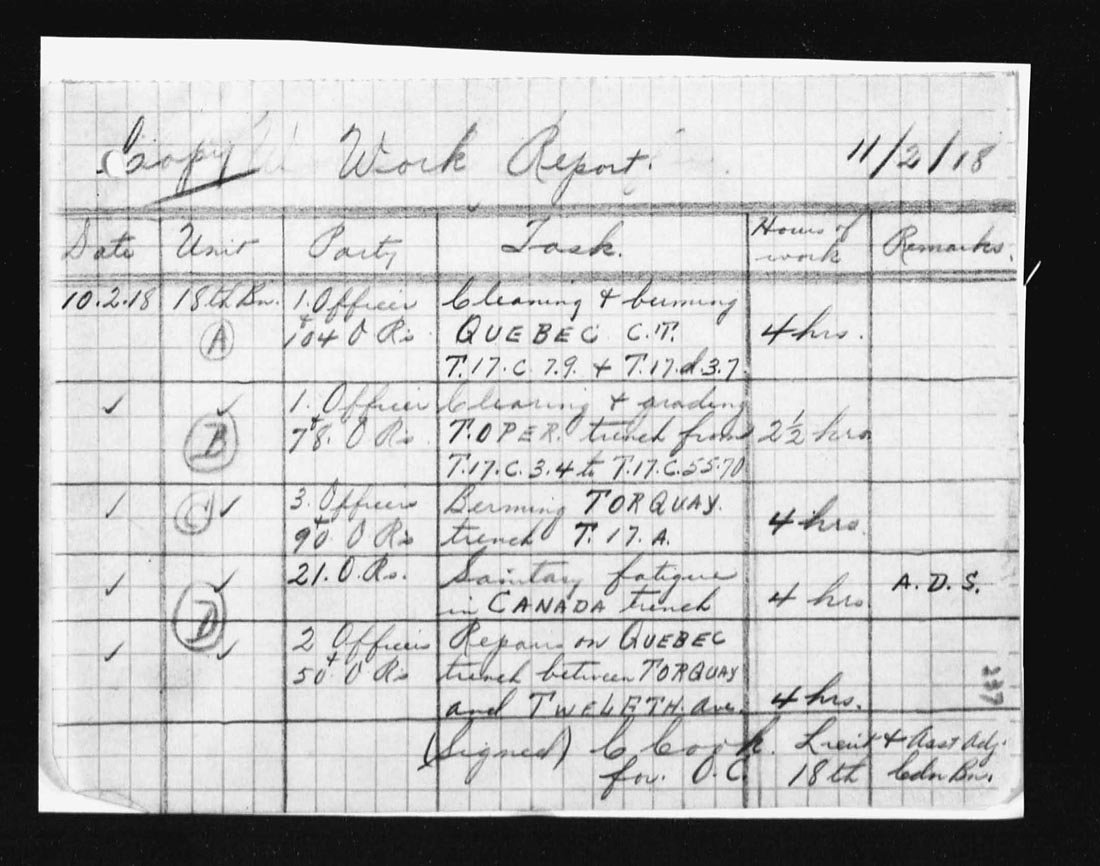 Copy Work Report. 11/2/18
Date Unit Party Task. Hours of work Remarks.
10.2.18 18th Bn. 1. Officer Cleaning & berming
(A) + 104 O Rs QUEBEC C.T. 4 hrs.
T.17.C 7.9. & T.17.d.3.7.
✓ ✓ 1. Officer Clearing & grading
(B) + 78. O Rs. T.OPER. trench from 2½ hrs
T.17.C.3.4 to T.17.C.55.70
✓ (C) ✓ 3. Officers Berming TORQUAY.
+ 90 O Rs trench T. 17. A. 4 hrs.
✓ ✓ 21. O. Rs. Sanitary fatigue A.D.S.
(D) in CANADA trench 4 hrs
✓ ✓ 2 Officers Repairs on QUEBEC
+ 50 O Rs trench between TORQUAY
and TWELETH Ave. 4 hrs.
(Signed) C Cook. Lieut & Asst Adj.
for. O.C. 18th Cdn Bn.